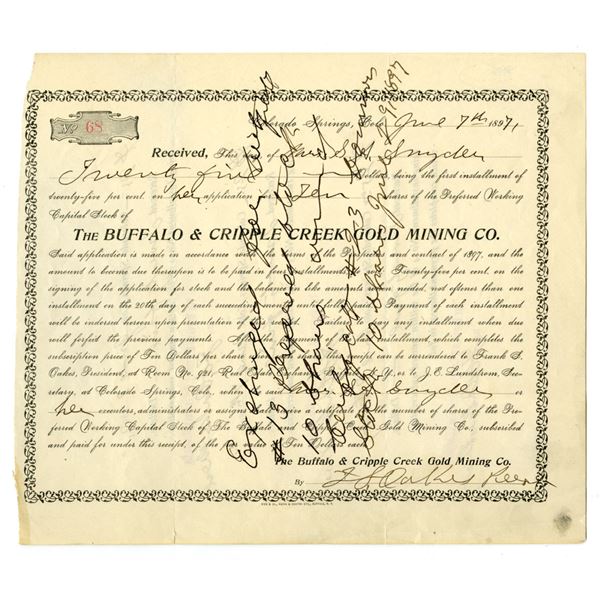 No 68
Colorado Springs, Colo. June 7th, 1897,
Received, This day of Mrs S. A. Snyder
Twenty five Dollars, being the first installment of
twenty-five per cent. on her application for Ten Shares of the Preferred Working
Capital Stock of
THE BUFFALO & CRIPPLE CREEK GOLD MINING CO.
Said application is made in accordance with the terms of the Prospectus and contract of 1897, and the
amount to become due thereupon is to be paid in four installments Twenty-five per cent. on the
signing of the application for stock and the balance in like amounts when needed, not oftener than one
installment on the 20th day of each succeeding month until fully paid. Payment of each installment
will be indorsed hereon upon presentation of this receipt. Failure to pay any installment when due
will forfeit the previous payments. the payment of installment, which completes the
subscription price of Ten Dollars per share this receipt can be surrendered to Frank S.
Oakes, President, at Room No. 921, Real Estate Exchange N. Y. or to J. E. Lundstrom, Secre-
tary, at Colorado Springs, Colo., when Snyder
her executors, administrators or assigns receive a certificate for the number of shares of the Pre-
ferred Working Capital Stock of The Buffalo and Cripple Creek Gold Mining Co., subscribed
and paid for under this receipt, of the par value of Ten Dollars each.
The Buffalo & Cripple Creek Gold Mining Co.
By F S Oakes
Exchanged for
#13 Preferred stock
10 Shares
#23
10 shares 1897